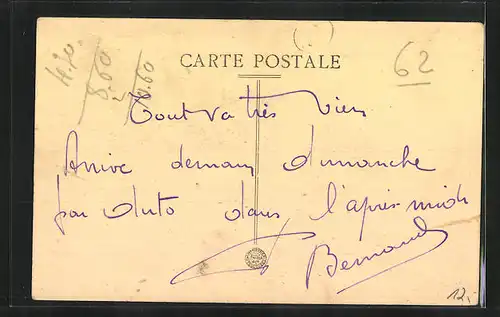 (.)
62
4.20.
8.60
10.60
CARTE POSTALE
Tout va très bien
Arrive demain dimanche
par auto dans l'après-midi
Bernard
12,-